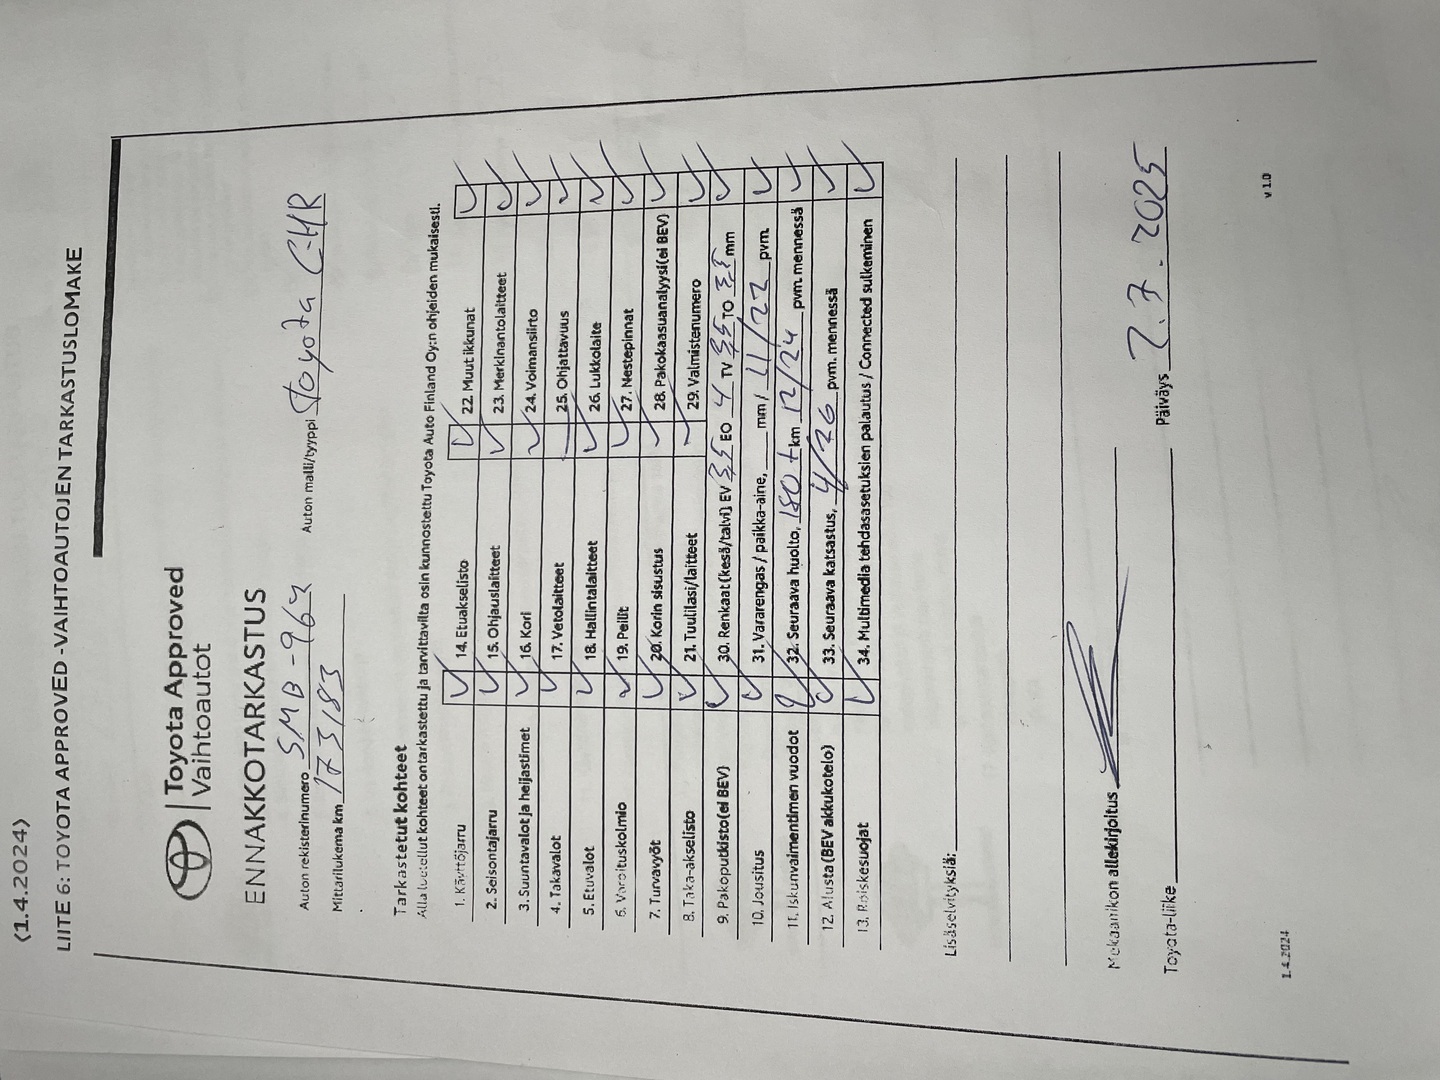 (1.4.2024)
LIITE 6: TOYOTA APPROVED -VAIHTOAUTOJEN TARKASTUSLOMAKE
Toyota Approved
Vaihtoautot
ENNAKKOTARKASTUS
Auton rekisterinumero SMB-964 Auton malli/tyyppi Toyota C-HR
Mittarilukema km 173183
Tarkastetut kohteet
Alla luetellut kohteet on tarkastettu ja tarvittavilta osin kunnostettu Toyota Auto Finland Oy:n ohjeiden mukaisesti.
1. Käyttöjarru 14. Etuakselisto 22. Muut ikkunat
2. Seisontajarru 15. Ohjauslaitteet 23. Merkinantolaitteet
3. Suuntavalot ja heijastimet 16. Kori 24. Voimansiirto
4. Takavalot 17. Vetolaitteet 25. Ohjattavuus
5. Etuvalot 18. Hallintalaitteet 26. Lukkolaite
6. Varoituskolmio 19. Peilit 27. Nestepinnat
7. Turvavyöt 20. Korin sisustus 28. Pakokaasuanalyysi(ei BEV)
8. Taka-akselisto 21. Tuulilasi/laitteet 29. Valmistenumero
9. Pakoputkisto(ei BEV) 30. Renkaat (kesä/talvi) EV 3,5 EO 4 TV 3,5 TO 3,5 mm
10. Jousitus 31. Vararengas / paikka-aine, mm/ 11/22 pvm.
11. Iskunvaimentimen vuodot 32. Seuraava huolto, 180 t km 12/24 pvm. mennessä
12. Alusta (BEV akkukotelo) 33. Seuraava katsastus, 4/26 pvm. mennessä
13. Roiskesuojat 34. Multimedia tehdasasetuksien palautus / Connected sulkeminen
Lisäselvityksiä:
Mekaanikon allekirjoitus
Toyota-liike Päiväys 2.7.2025
1.4.2024 v 1.0